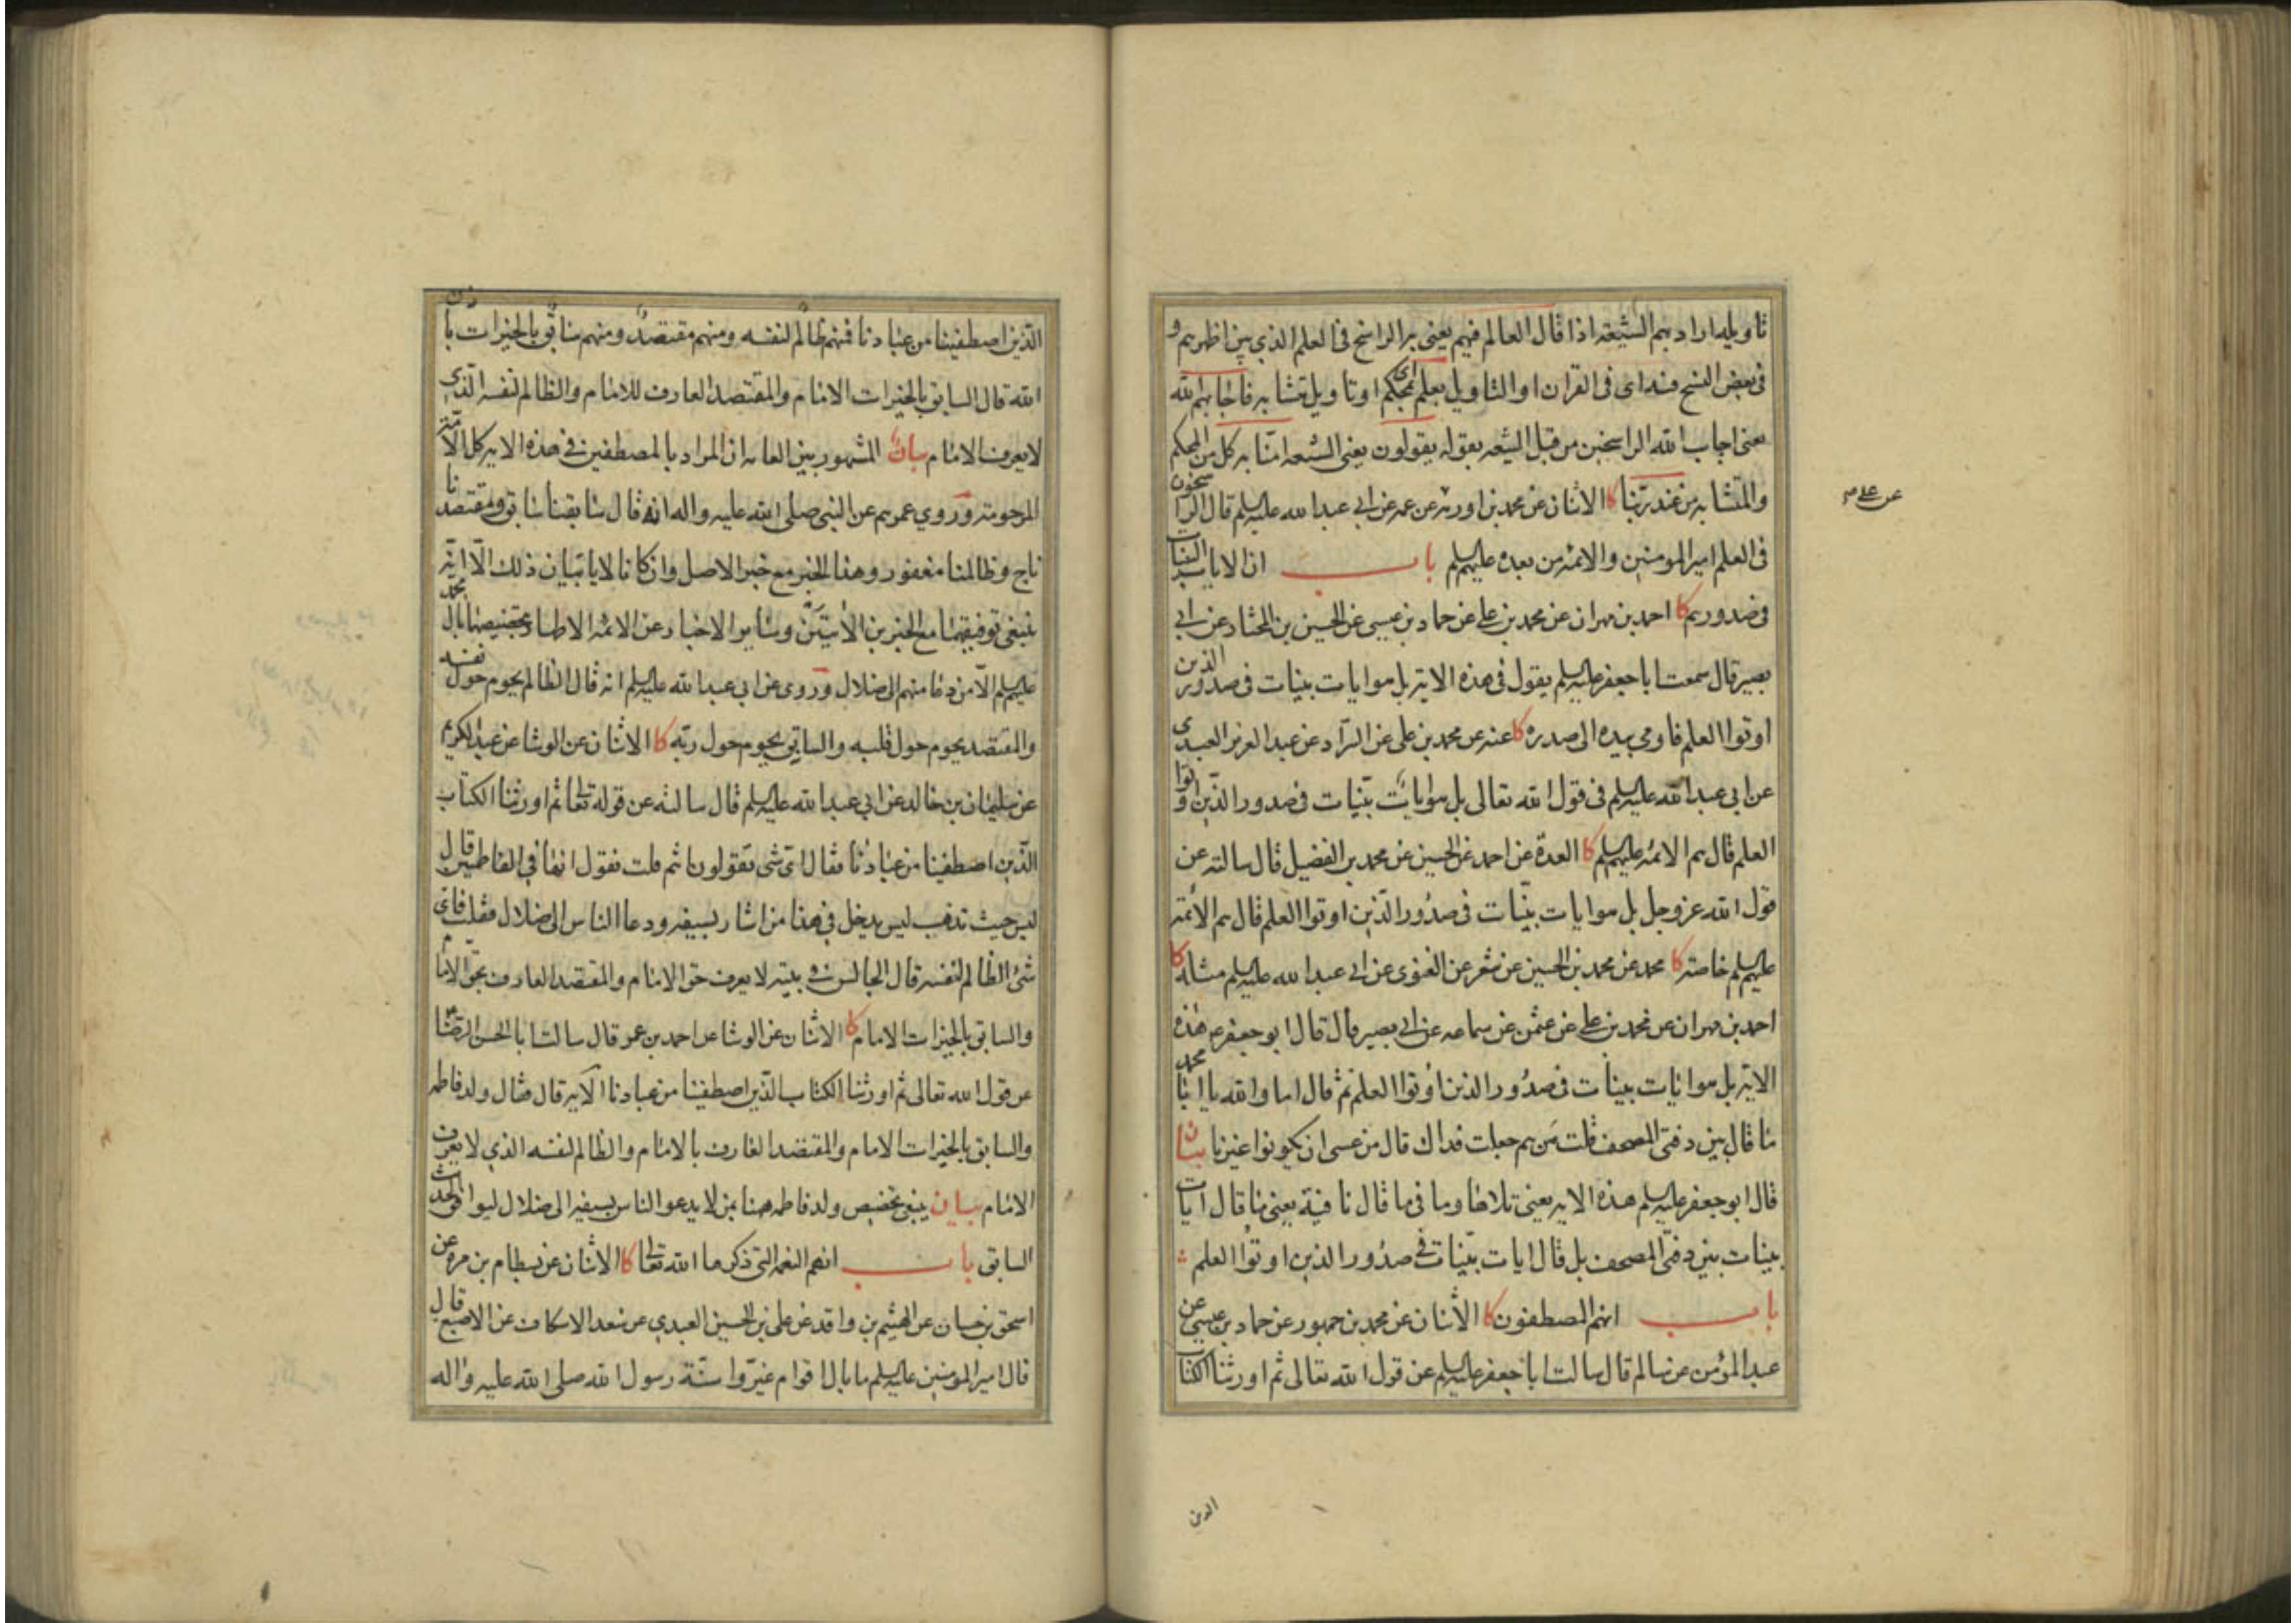 تاويله اراد بهم الشيعة اذا قال العالم فيهم يعنى به الراسخ فى العلم الذي بين اظهرهم و
فى بعض النسخ فيه اى فى القران او التاويل بعلم اى بمحكم او تاويل متشابه فاجابهم الله
يعنى اجاب الله الراسخين من قبل الشيعه بقوله يقولون يعنى الشيعه امنّا به كل من المحكم
والمتشابه من عند ربّنا كا الاثنان عن محمد بن اورمه عن عمه عن ابى عبد الله عليه السلم قال الراسخون
عن على م
فى العلم امير المومنين والائمه من بعده عليهم السلم باب ان الايات البينات
فى صدورهم كا احمد بن مهران عن محمد بن على عن حماد بن عيسى عن الحسين بن المختار عن ابى
بصير قال سمعت ابا جعفر عليه السلم يقول فى هذه الاية بل هو ايات بينات فى صدور الذين
اوتوا العلم فاومى بيده الى صدره كا عنه عن محمد بن على عن السرّاد عن عبد العزيز العبدى
عن ابى عبد الله عليه السلم فى قول الله تعالى بل هو ايات بيّنات فى صدور الذين اوتوا
العلم قال هم الائمه عليهم السلم كا العدة عن احمد عن الحسين عن محمد بن الفضيل قال سالته عن
قول الله عز وجل بل هو ايات بيّنات فى صدُور الّذين اوتوا العلم قال هم الائمّة
عليهم السلم خاصة كا محمد عن محمد بن الحسين عن شعر عن الغنوى عن ابى عبد الله عليه السلم مثله كا
احمد بن مهران عن محمد بن على عن عثمن عن سماعه عن ابى بصير قال قال ابو جعفر ع هذه
الاية بل هو ايات بينات فى صدُور الذين اُوتوا العلم ثم قال اما والله يا ابا محمد
ما قال بين دفتى المصحف قلت مَن هم جعلت فداك قال من عسى ان يكونوا غيرنا بيان
قال ابو جعفر عليه السلم هذه الايه يعنى تلاها وما فى ما قال نافية يعنى ما قال ايات
بينات بين دفتّى المصحف بل قال ايات بيّنات فى صدُور الذين اوتُوا العلم
باب انهم المصطفون كا الاثنان عن محمد بن جمهور عن حماد بن عيسى عن
عبد المؤمن عن سالم قال سالت ابا جعفر عليه السلم عن قول الله تعالى ثم اورثنا الكتاب
الذين
الّذين اصطفينا من عبادنا فمنهم ظالم لنفسه ومنهم مقتصد ومنهم سابق بالخيرات باذن
الله قال السابق بالخيرات الامام والمقتصد العارف للامام والظالم لنفسه الّذى
لا يعرف الامام بيان المشهور بين العامه ان المراد بالمصطفين فى هذه الايه كل الامّة
المرحومة وروي عمرهم عن النبى صلى الله عليه واله انه قال سابقنا سابق ومقتصدنا
ناج وظالمنا مغفور وهذا الخبر مع خبر الاصل وان كانا لا يابيان ذلك الّا انّه
ينبغى توفيقهما مع الخبرين الاتيَيْن وساير الاخبار عن الائمه الاطهار بتخصيصها بال محمد
عليهم السلم الّا من دعا منهم الى ضلال وروى عن ابى عبد الله عليه السلم انه قال الظالم يحوم حول نفسه
والمقتصد يحوم حول قلبه والسابق يحوم حول ربّه كا الاثنان عن الوشا عن عبد الكريم
عن سليمان بن خالد عن ابى عبد الله عليه السلم قال سالته عن قوله تعالى ثم اورثنا الكتاب
الّذين اصطفينا من عبادنا فقال اىّ شى تقولون انتم قلت نقول انها فى الفاطميين قال
ليس حيث تذهب ليس يدخل فى هذا من اشار بسيفه ودعا الناس الى ضلال فقلت فاى
شئ الظالم لنفسه قال الجالس فى بيته لا يعرف حق الامام والمقتصد العارف بحق الامام
والسابق بالخيرات الامام كا الاثنان عن الوشا عن احمد بن عمر قال سالت ابا الحسن الرضا ع
عن قول الله تعالى ثم اورثنا الكتاب الّذين اصطفينا من عبادنا الايه قال فقال ولد فاطمه
والسابق بالخيرات الامام والمقتصد العارف بالامام والظالم لنفسه الذي لا يعرف
الامام بيان ينبغى تخصيص ولد فاطمه هنا بمن لا يدعو الناس بسيفه الى ضلال ليوافق الحديث
السابق باب انهم النعمه التى ذكرها الله تعالى كا الاثنان عن بسطام بن مره عن
اسحق بن حسان عن الهيثم بن واقد عن على بن الحسين العبدي عن سعد الاسكاف عن الاصبغ قال
قال امير المومنين عليه السلم ما بال اقوام غيّروا سنّة رسول الله صلى الله عليه واله